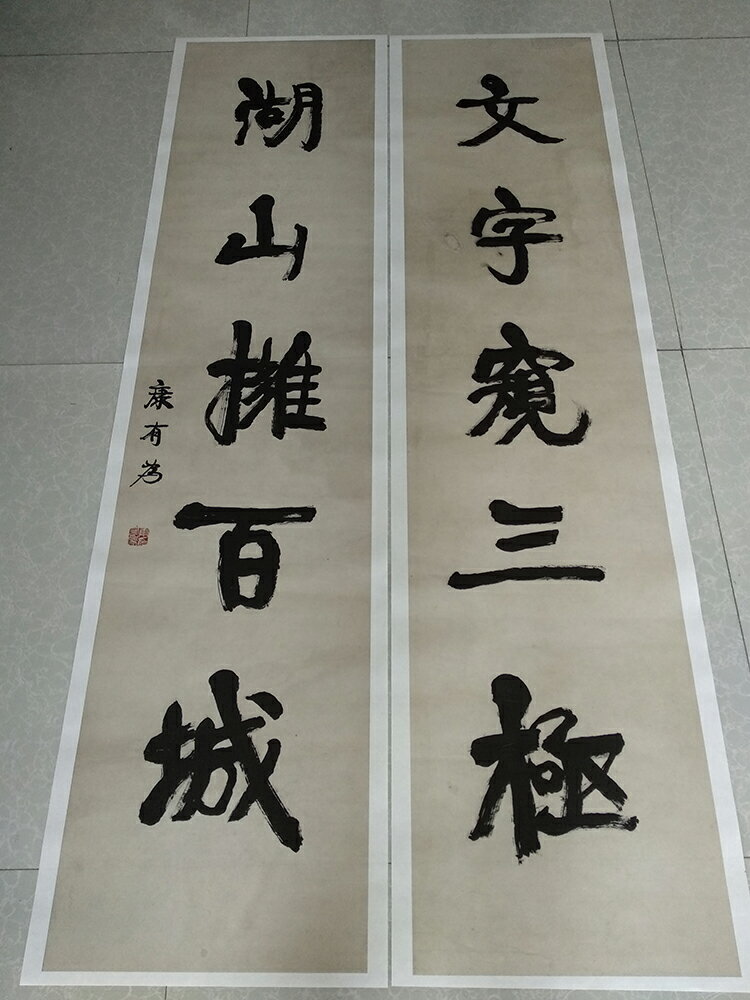 文字窺三極
湖山擁百城
康有為